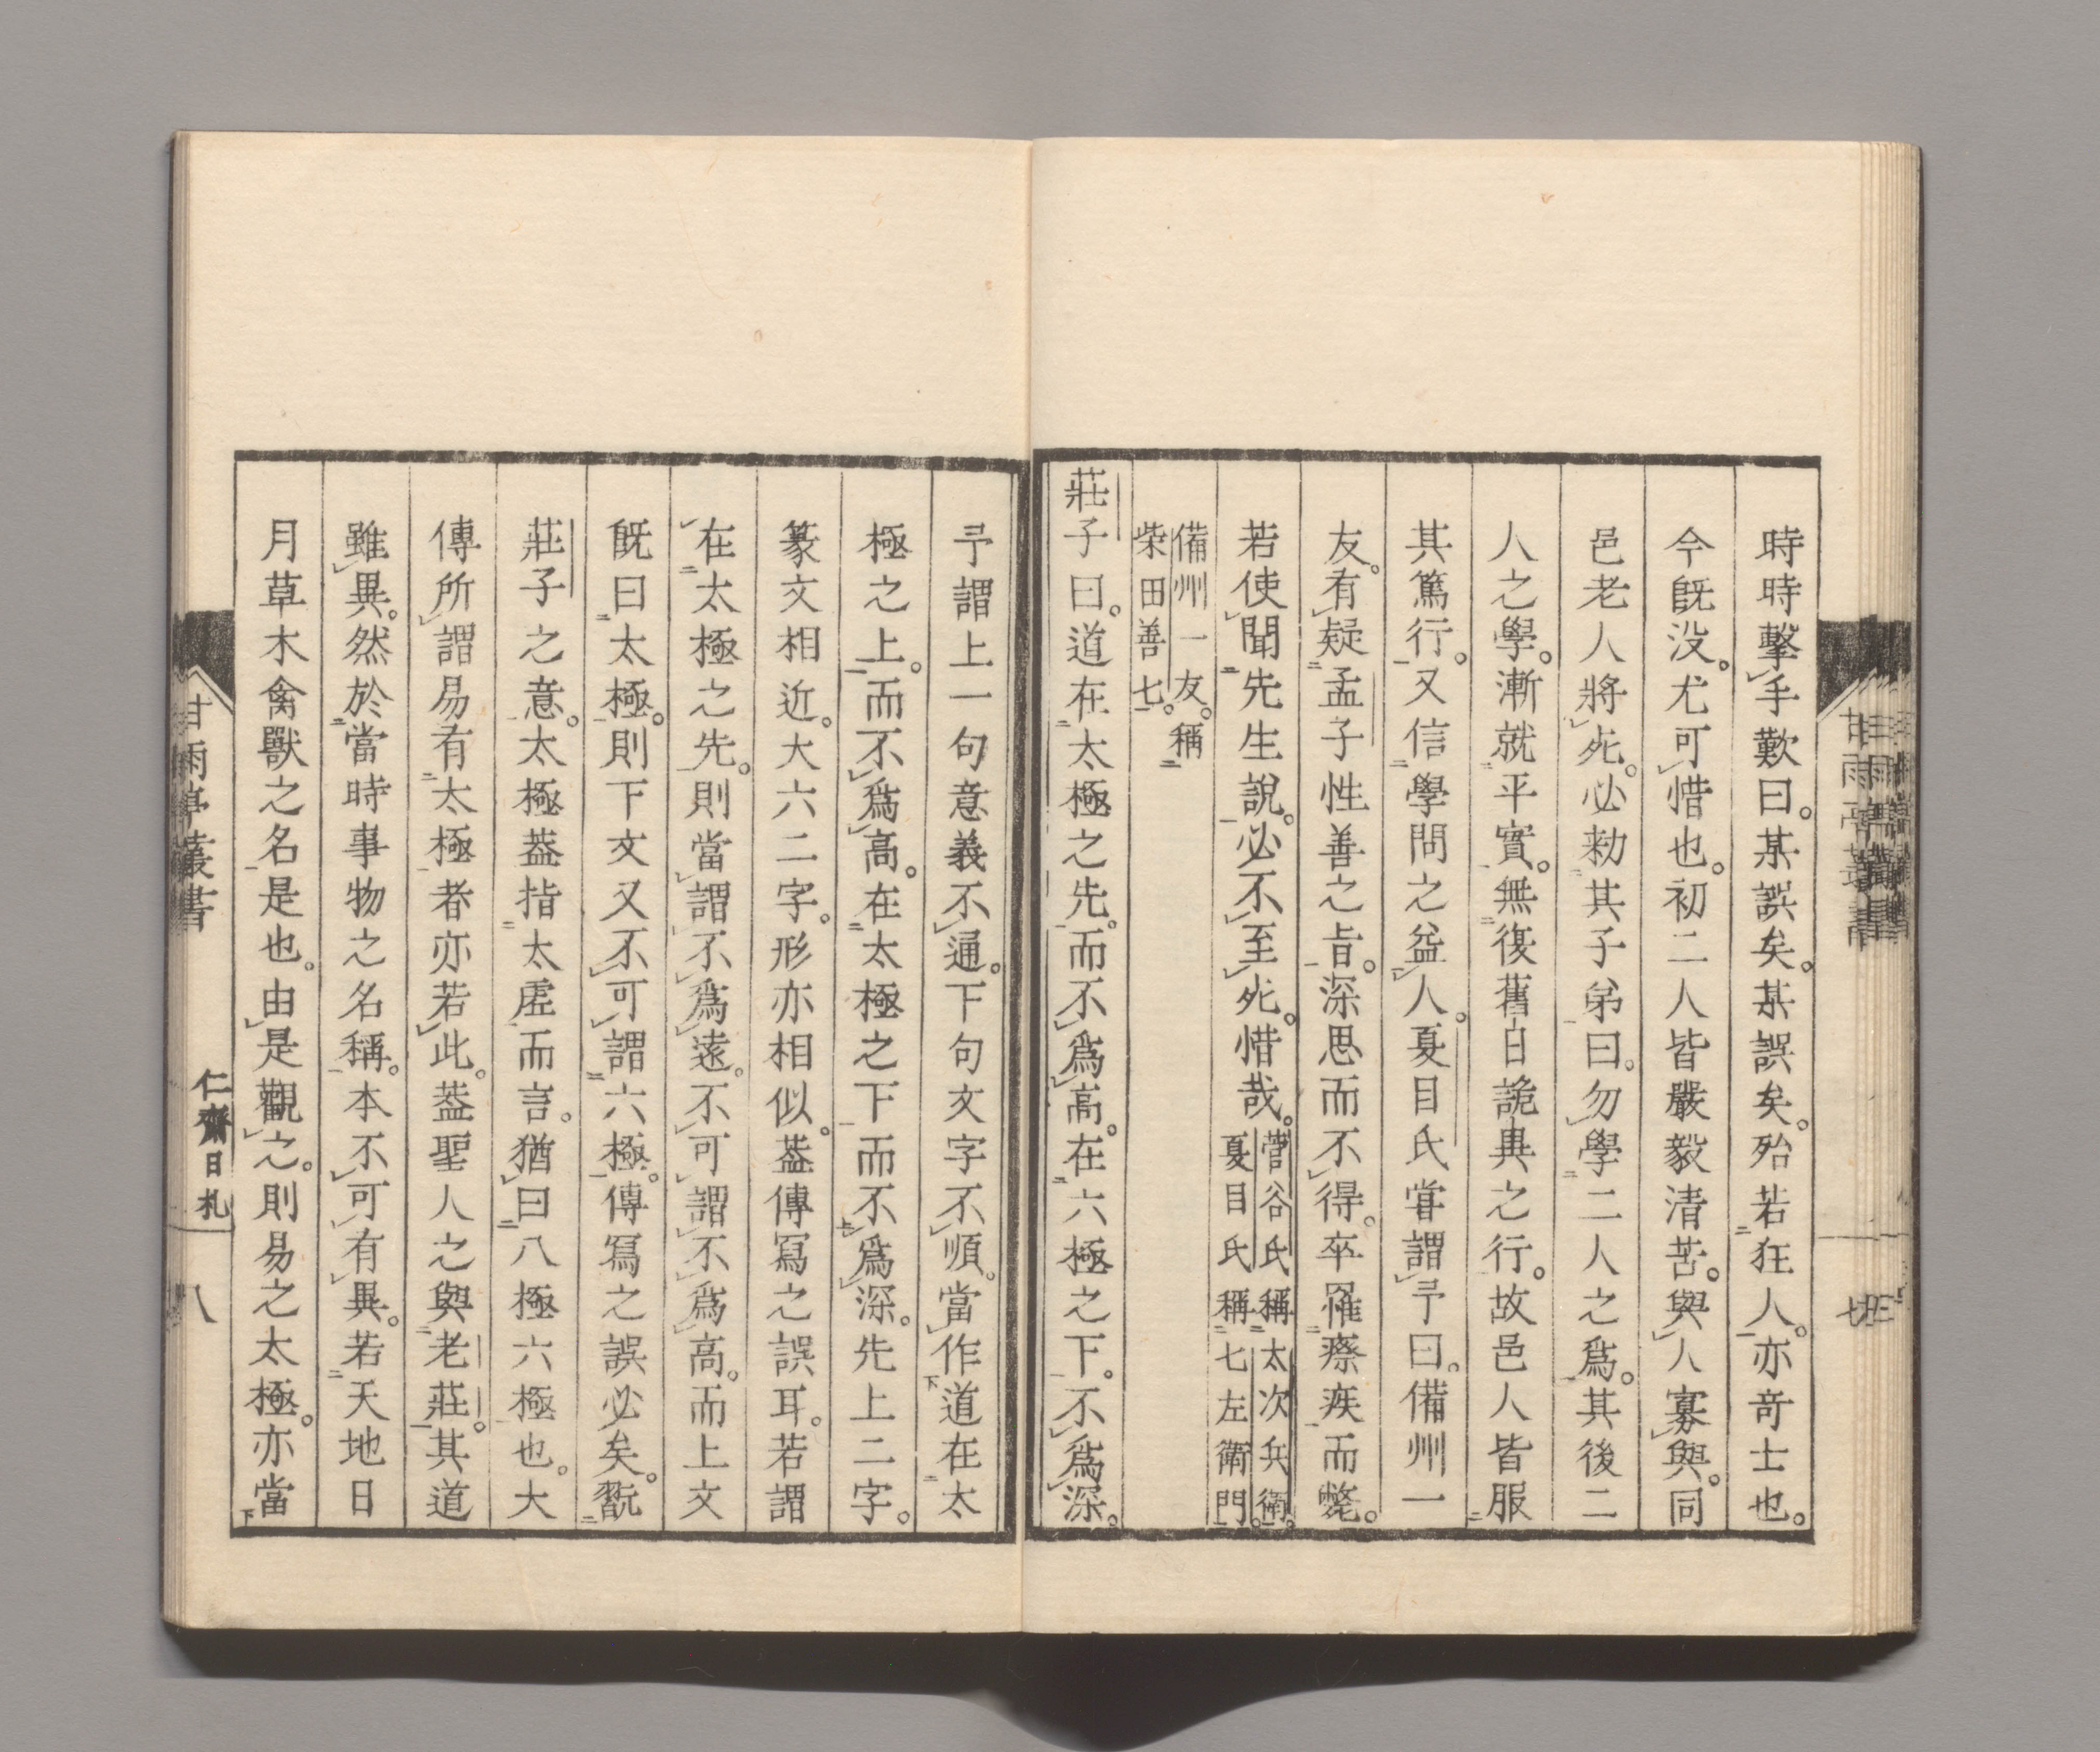 時時擊手歎曰。某誤矣。某誤矣。殆若狂人。亦竒士也。
今旣没。尤可惜也。初二人皆嚴毅清苦。與人寡與。同
邑老人將死。必勑其子弟曰。勿學二人之爲。其後二
人之學。漸就平實。無復舊日詭異之行。故邑人皆服
其篤行。又信學問之益人。夏目氏甞謂予曰。備州一
友。有疑孟子性善之旨。深思而不得。卒罹瘵疾而斃。
若使聞先生說。必不至死。惜哉。
菅谷氏稱太次兵衛。
夏目氏稱七左衛門。
備州一友。稱
柴田善七。
莊子曰。道在太極之先。而不爲高。在六極之下。不爲深。
予謂上一句意義不通。下句文字不順。當作道在太
極之上。而不爲高。在太極之下而不爲深。先上二字。
篆文相近。大六二字。形亦相似。葢傳冩之誤耳。若謂
在太極之先。則當謂不爲遠。不可謂不爲高。而上文
旣曰太極。則下文又不可謂六極。傳冩之誤必矣。翫
莊子之意。太極葢指太虛而言。猶曰八極六極也。大
傳所謂易有太極者亦若此。葢聖人之與老莊。其道
雖異。然於當時事物之名稱。本不可有異。若天地日
月草木禽獸之名是也。由是觀之。則易之太極。亦當
甘雨亭叢書
仁齋日札
八
甘雨亭叢書
七